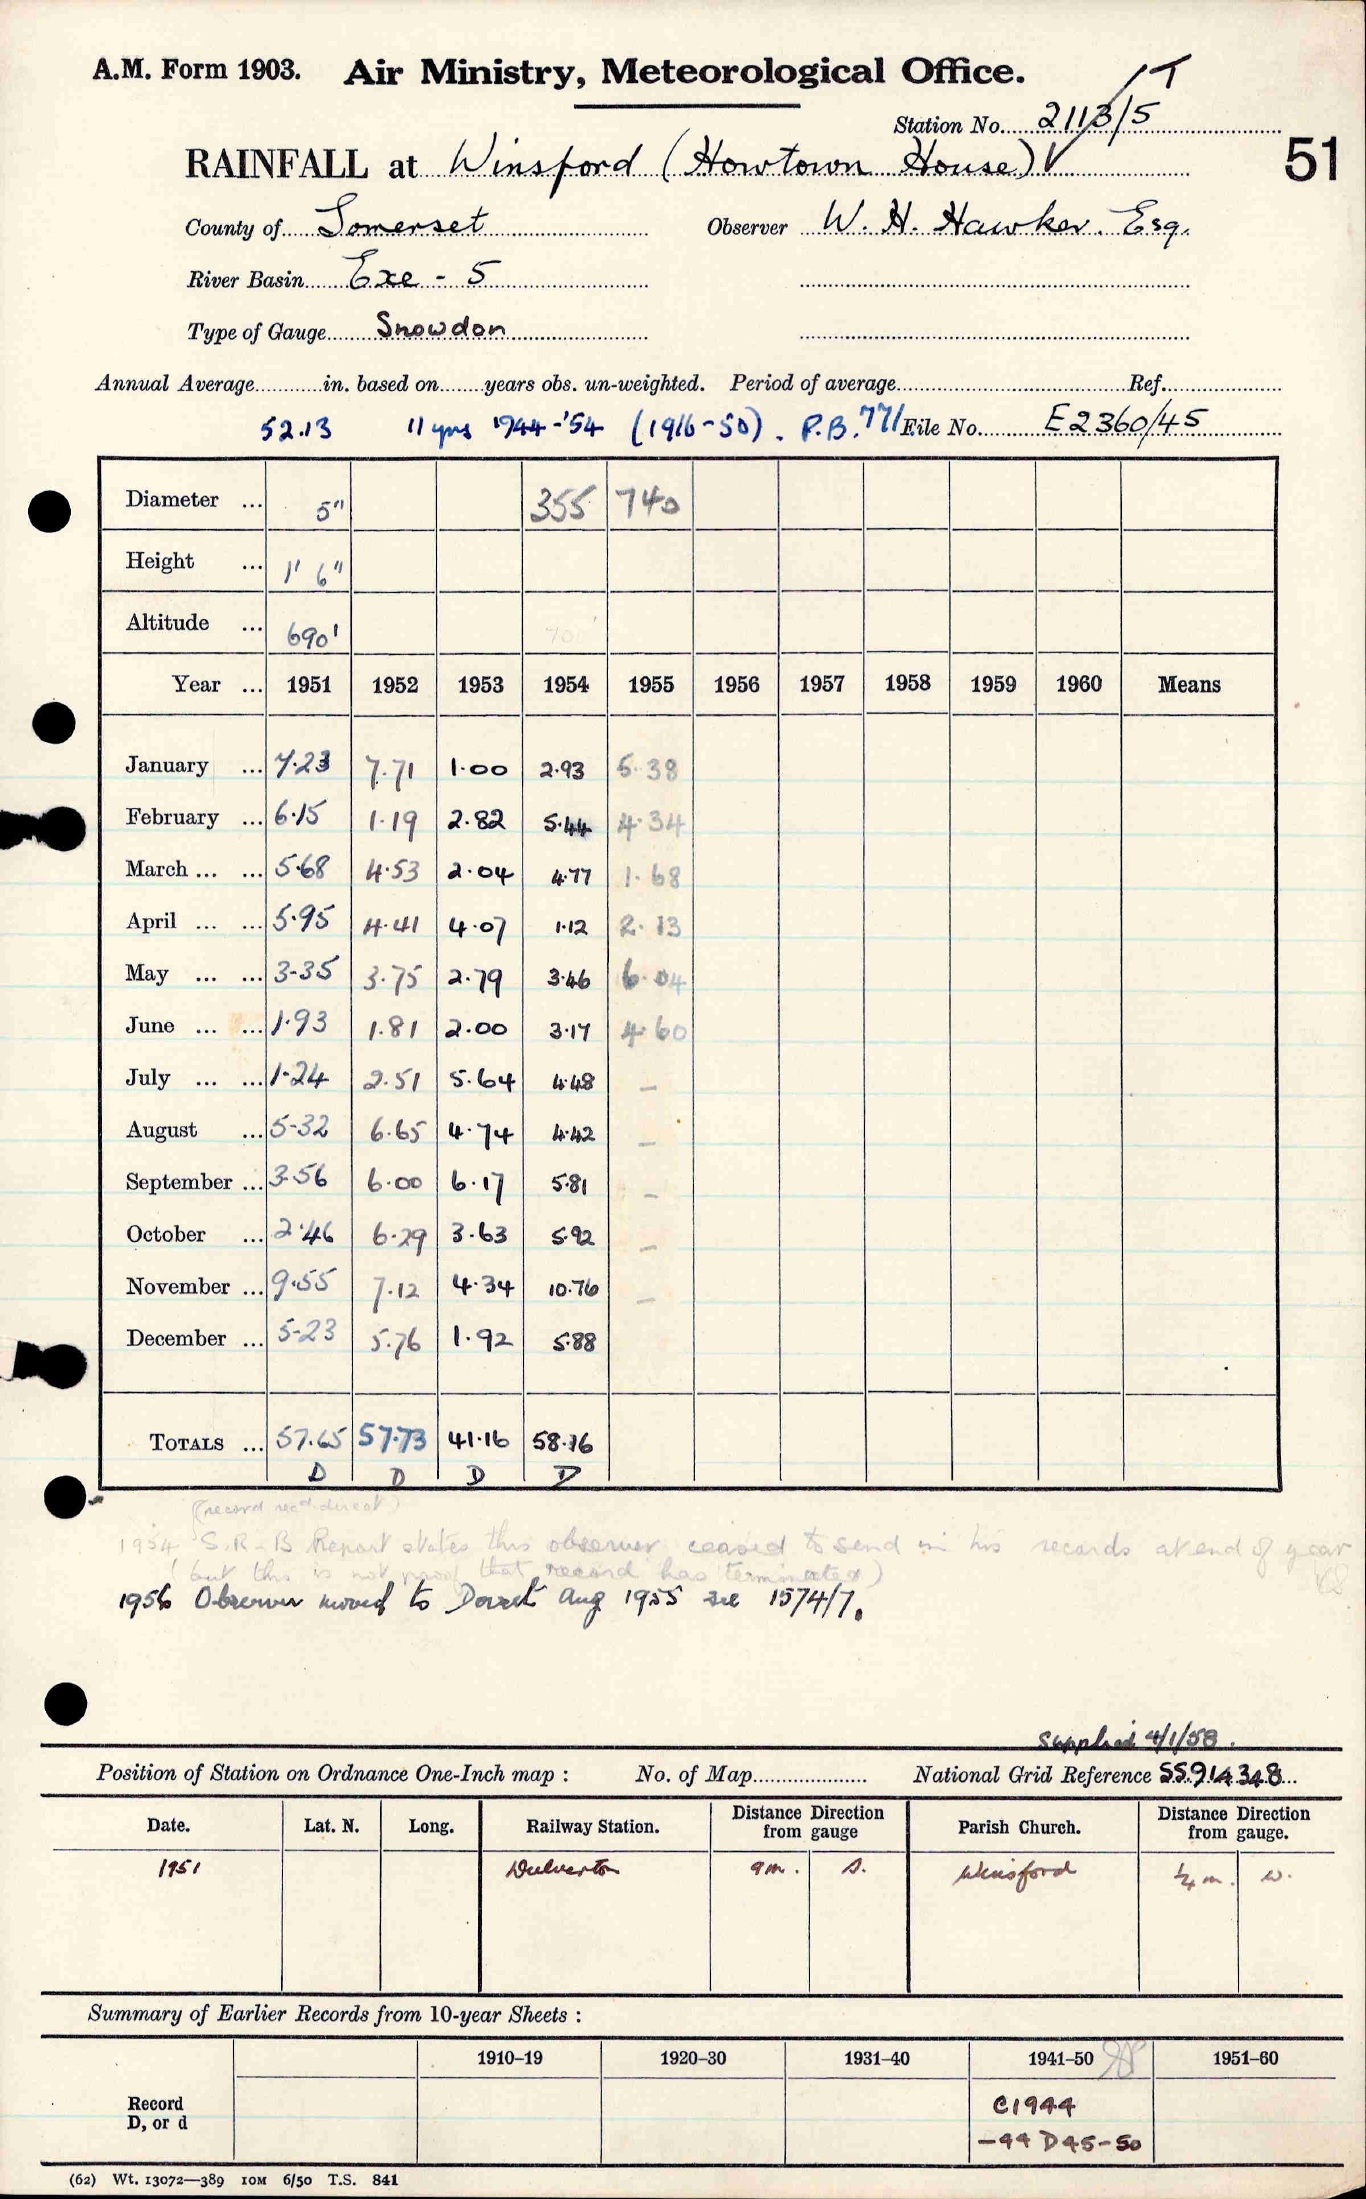 A.M. Form 1903. Air Ministry, Meteorological Office.
Station No. 2113/5 T
RAINFALL at Winsford (Howtown House)
51
County of Somerset Observer W. H. Hawker. Esq.
River Basin Exe - 5
Type of Gauge Snowdon
Annual Average in. based on years obs. un-weighted. Period of average Ref.
52.13 11 yrs 1944-'54 (1916-50). P.B. 771 File No. E2360/45
Diameter ... 5" 355 740
Height ... 1' 6"
Altitude ... 690'
Year ... 1951 1952 1953 1954 1955 1956 1957 1958 1959 1960 Means
January ... 7.23 7.71 1.00 2.93 5.38
February ... 6.15 1.19 2.82 5.44 4.34
March ... ... 5.68 4.53 2.04 4.77 1.68
April ... ... 5.95 4.41 4.07 1.12 2.13
May ... ... 3-35 3.75 2.79 3.46 6.04
June ... ... 1.93 1.81 2.00 3.17 4.60
July ... ... 1-24 2.51 5.64 4.48 -
August ... 5-32 6.65 4.74 4.42 -
September ... 3.56 6.00 6.17 5.81 -
October ... 2.46 6.29 3.63 5.92 -
November ... 9.55 7.12 4.34 10.76 -
December ... 5-23 5.76 1.92 5.88
TOTALS ... 57.65 57.73 41.16 58.16
D D D D
(record recd direct)
1954 S.R-B Report states this observer ceased to send in his records at end of year
(but this is not proof that record has terminated)
1956 Observer moved to Dorset Aug 1955 see 1574/7.
Supplied 4/1/58.
Position of Station on Ordnance One-Inch map : No. of Map National Grid Reference SS914348
Date. Lat. N. Long. Railway Station. Distance Direction from gauge Parish Church. Distance Direction from gauge.
1951 Dulverton 9m. S. Winsford 1/4 m. W.
Summary of Earlier Records from 10-year Sheets :
1910–19 1920–30 1931–40 1941–50 1951–60
Record D, or d C1944
-44 D45-50
(62) Wt. 13072—389 10M 6/50 T.S. 841